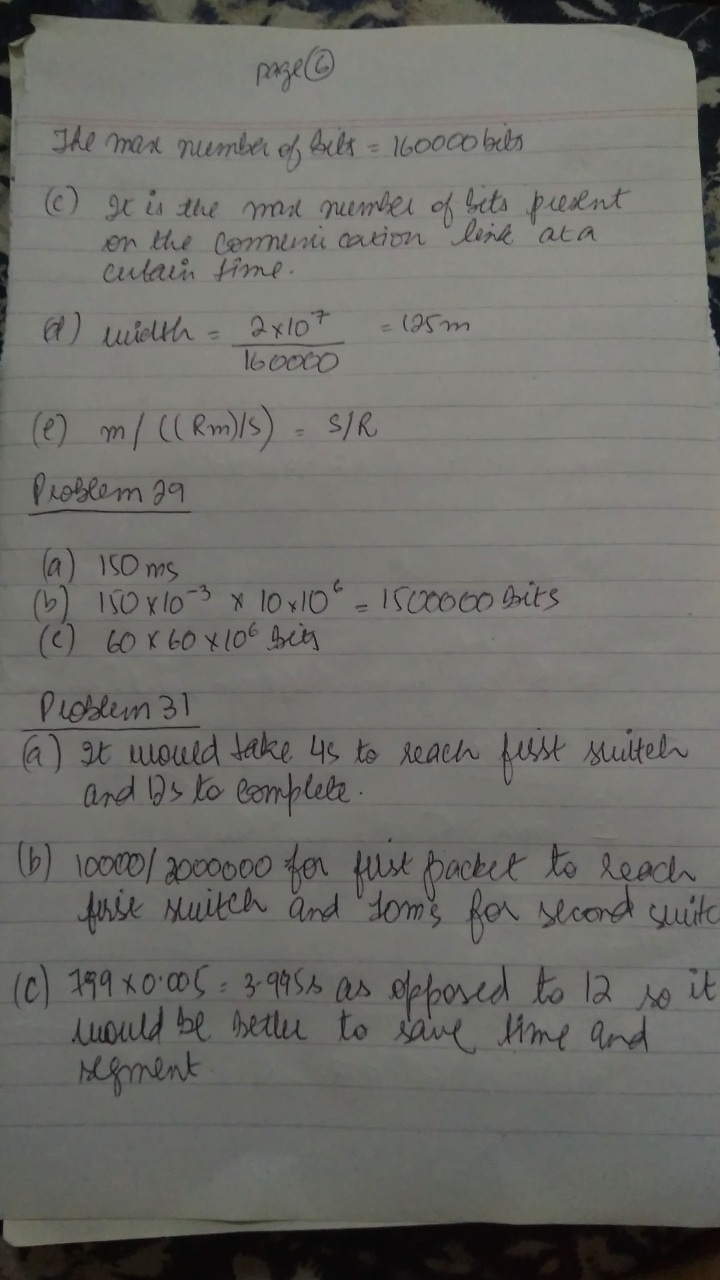 page 6
The max number of bits = 160000 bits
(c) It is the max number of bits present
on the communication link at a
certain time.
(d) width = 2x10^7 / 160000 = 125m
(e) m / ((Rm)/s) = S/R
Problem 29
(a) 150 ms
(b) 150 x 10^-3 x 10x10^6 = 1500000 bits
(c) 60 x 60 x 10^6 bits
Problem 31
(a) It would take 4s to reach first switch
and 12s to complete.
(b) 10000/2000000 for first packet to reach
first switch and 10ms for second switc
(c) 799 x 0.005 = 3.995s as opposed to 12 so it
would be better to save time and
segment